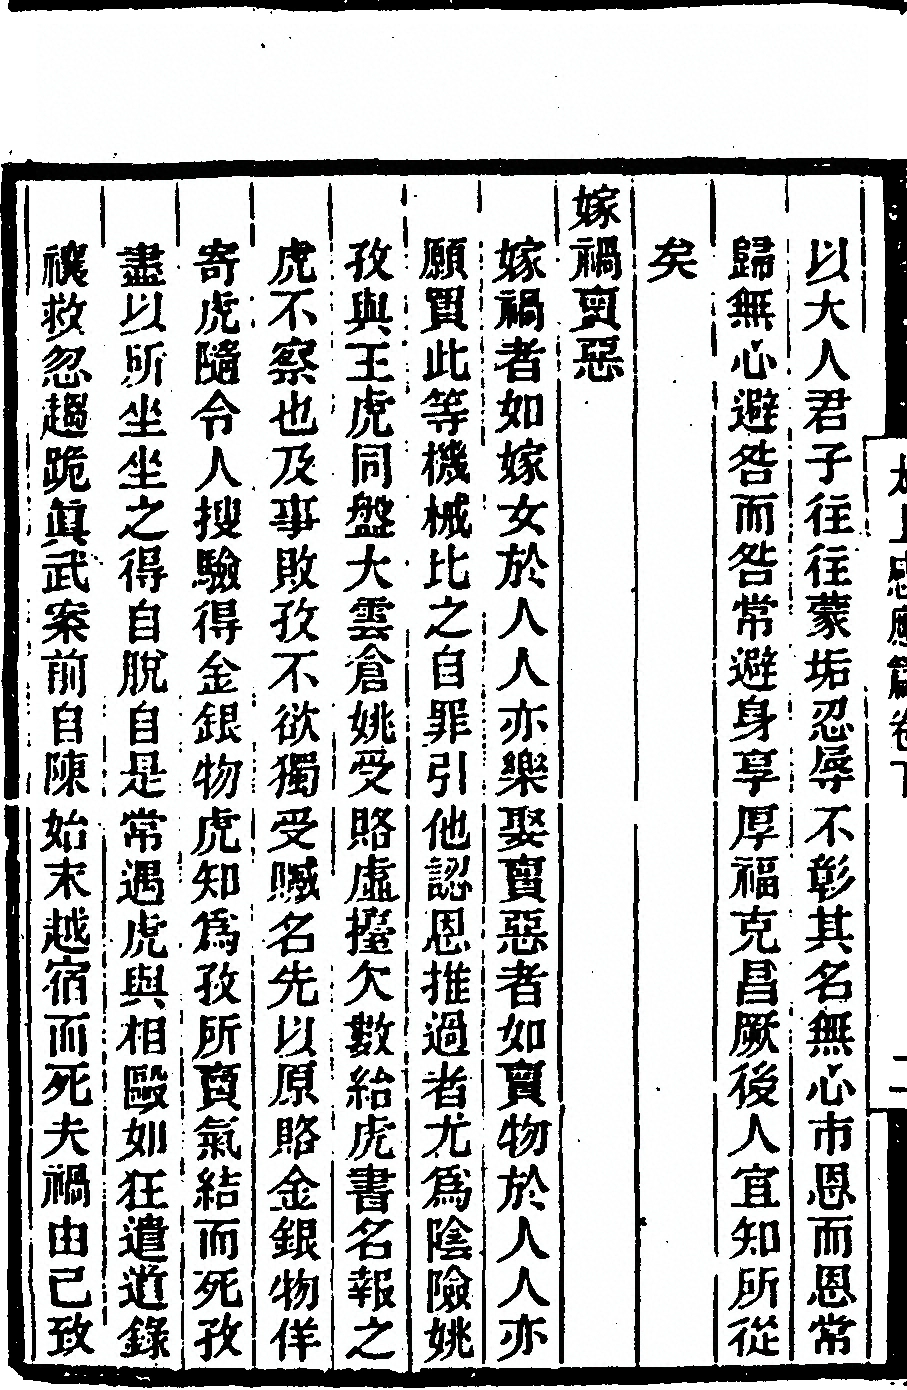 太上感應篇卷下
二
以大人君子往往蒙垢忍辱不彰其名無心市恩而恩常
歸無心避咎而咎常避身享厚福克昌厥後人宜知所從
矣
嫁禍賣惡
嫁禍者如嫁女於人人亦樂娶賣惡者如賣物於人人亦
願買此等機械比之自罪引他認恩推過者尤爲陰險姚
孜與王虎同盤大雲倉姚受賂虛擡欠數給虎書名報之
虎不察也及事敗孜不欲獨受贓名先以原賂金銀物佯
寄虎隨令人搜驗得金銀物虎知爲孜所賣氣結而死孜
盡以所坐坐之得自脫自是常遇虎與相毆如狂遣道錄
禳救忽趨跪眞武案前自陳始末越宿而死夫禍由己致